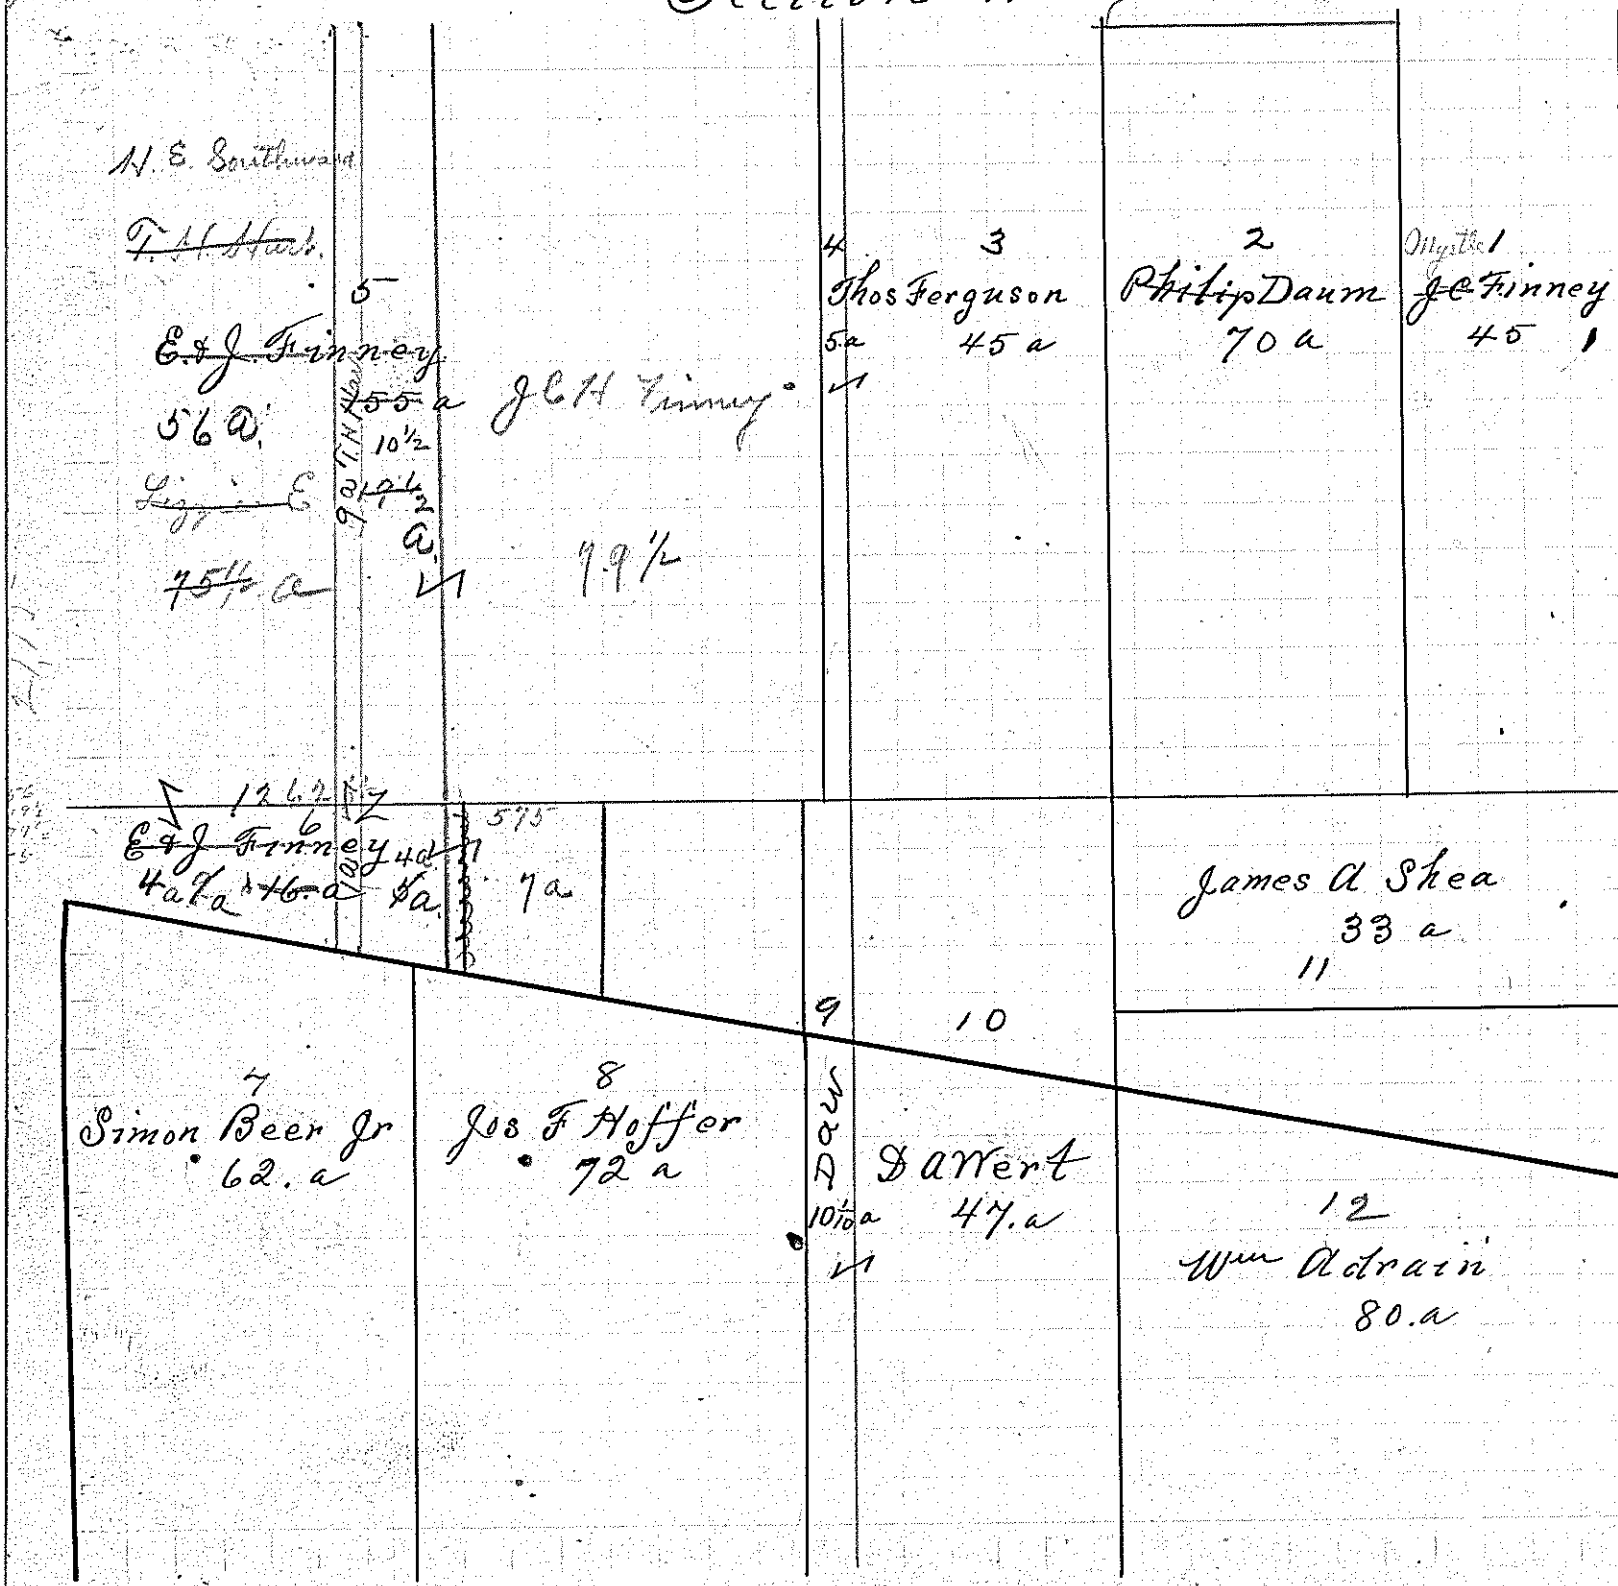 N. E. Southward
T. H. Hart.
5
E. & J. Finney
56 a.
155 a
10 1/2
9 a T. H. Hart
a.
Lizzie E
75 1/2 a
J C H Finney
99 1/2
4
5 a
3
Thos Ferguson
45 a
2
Philip Daum
70 a
Myrtle 1
J C Finney
45
6
E & J Finney
4a 7a 16 a
4a
575
7a
James A Shea
33 a
11
9
10
7
Simon Beer Jr
62. a
8
Jos F Hoffer
72 a
10 1/10 a
D A Wert
47. a
12
Wm Adrain
80. a